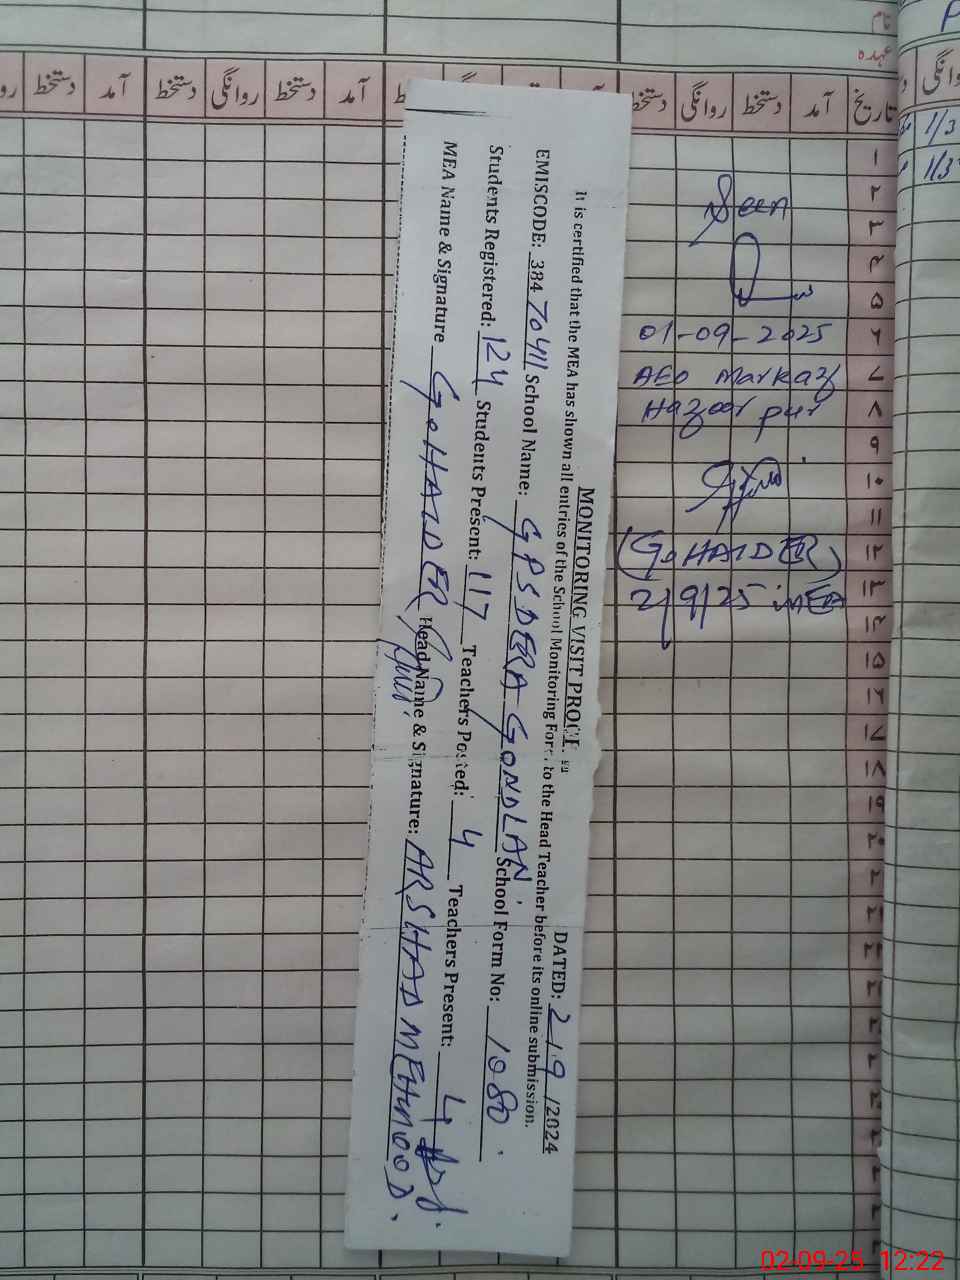 نام
عہدہ
تاریخ آمد دستخط روانگی دستخط آمد دستخط روانگی دستخط آمد دستخط
روانگی
1/3
1/3
۱
۲
۳
۴
۵
۶
۷
۸
۹
۱۰
۱۱
۱۲
۱۳
۱۴
۱۵
۱۶
۱۷
۱۸
۱۹
۲۰
Seen
01-09-2025
AEO Markaz
Hazoor pur
(G.HAIDER)
2/9/25 MEA
MONITORING VISIT PROOF DATED: 2/9/2024
It is certified that the MEA has shown all entries of the School Monitoring Form to the Head Teacher before its online submission.
EMISCODE: 38470411 School Name: GPS DERA GONDLAN School Form No: 1080
Students Registered: 124 Students Present: 117 Teachers Posted: 4 Teachers Present: 4
MEA Name & Signature G.HAIDER Head Name & Signature: ARSHAD MEHMOOD.
02-09-25 12:22